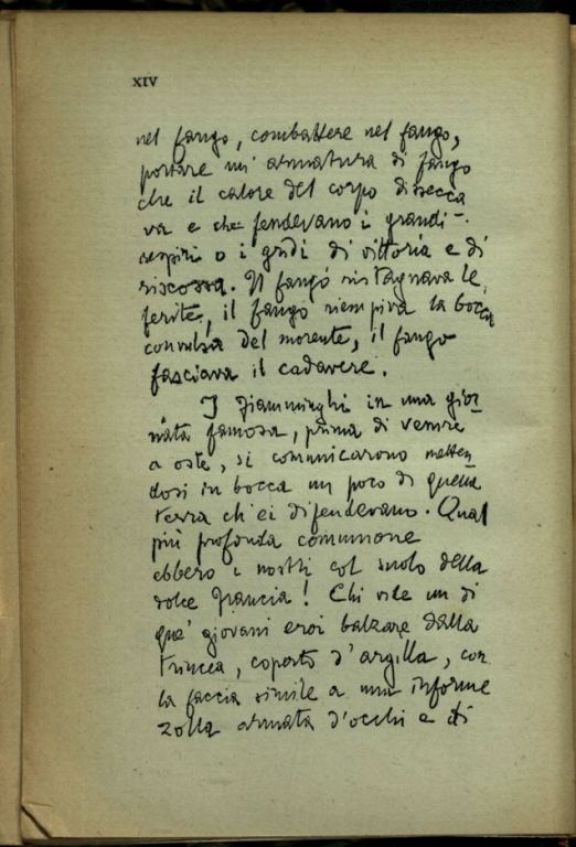 XIV
nel fango, combattere nel fango,
portare un' armatura di fango
che il calore del corpo dissecca
va e che fendevano i grandi
respiri o i gridi di vittoria e di
riscossa. Il fango ristagnava le
ferite, il fango riempiva la bocca
convulsa del morente, il fango
fasciava il cadavere.
I Fiamminghi in una gior-
nata famosa, prima di venire
a oste, si comunicarono metten-
dosi in bocca un poco di quella
terra ch'ei difendevano. Qual
più profonda comunione
ebbero i nostri col suolo della
dolce Francia! Chi vide un di
que' giovani eroi balzare dalla
trincea, coperto d'argilla, con
la faccia simile a una informe
zolla armata d'occhi e di